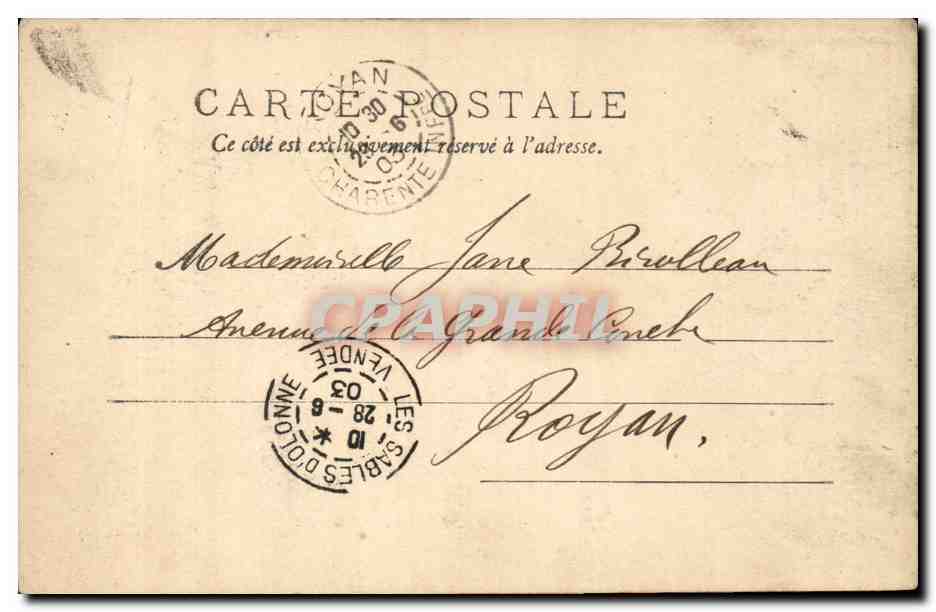 CARTE POSTALE
Ce côté est exclusivement réservé à l'adresse.
ROYAN
10 30
29 - 6
03
CHARENTE INFRE
Mademoiselle Jane Birolleau
Avenue de la Grande Conche
Royan.
CPAPHIL
LES SABLES D'OLONNE
10 *
28 - 6
03
VENDÉE